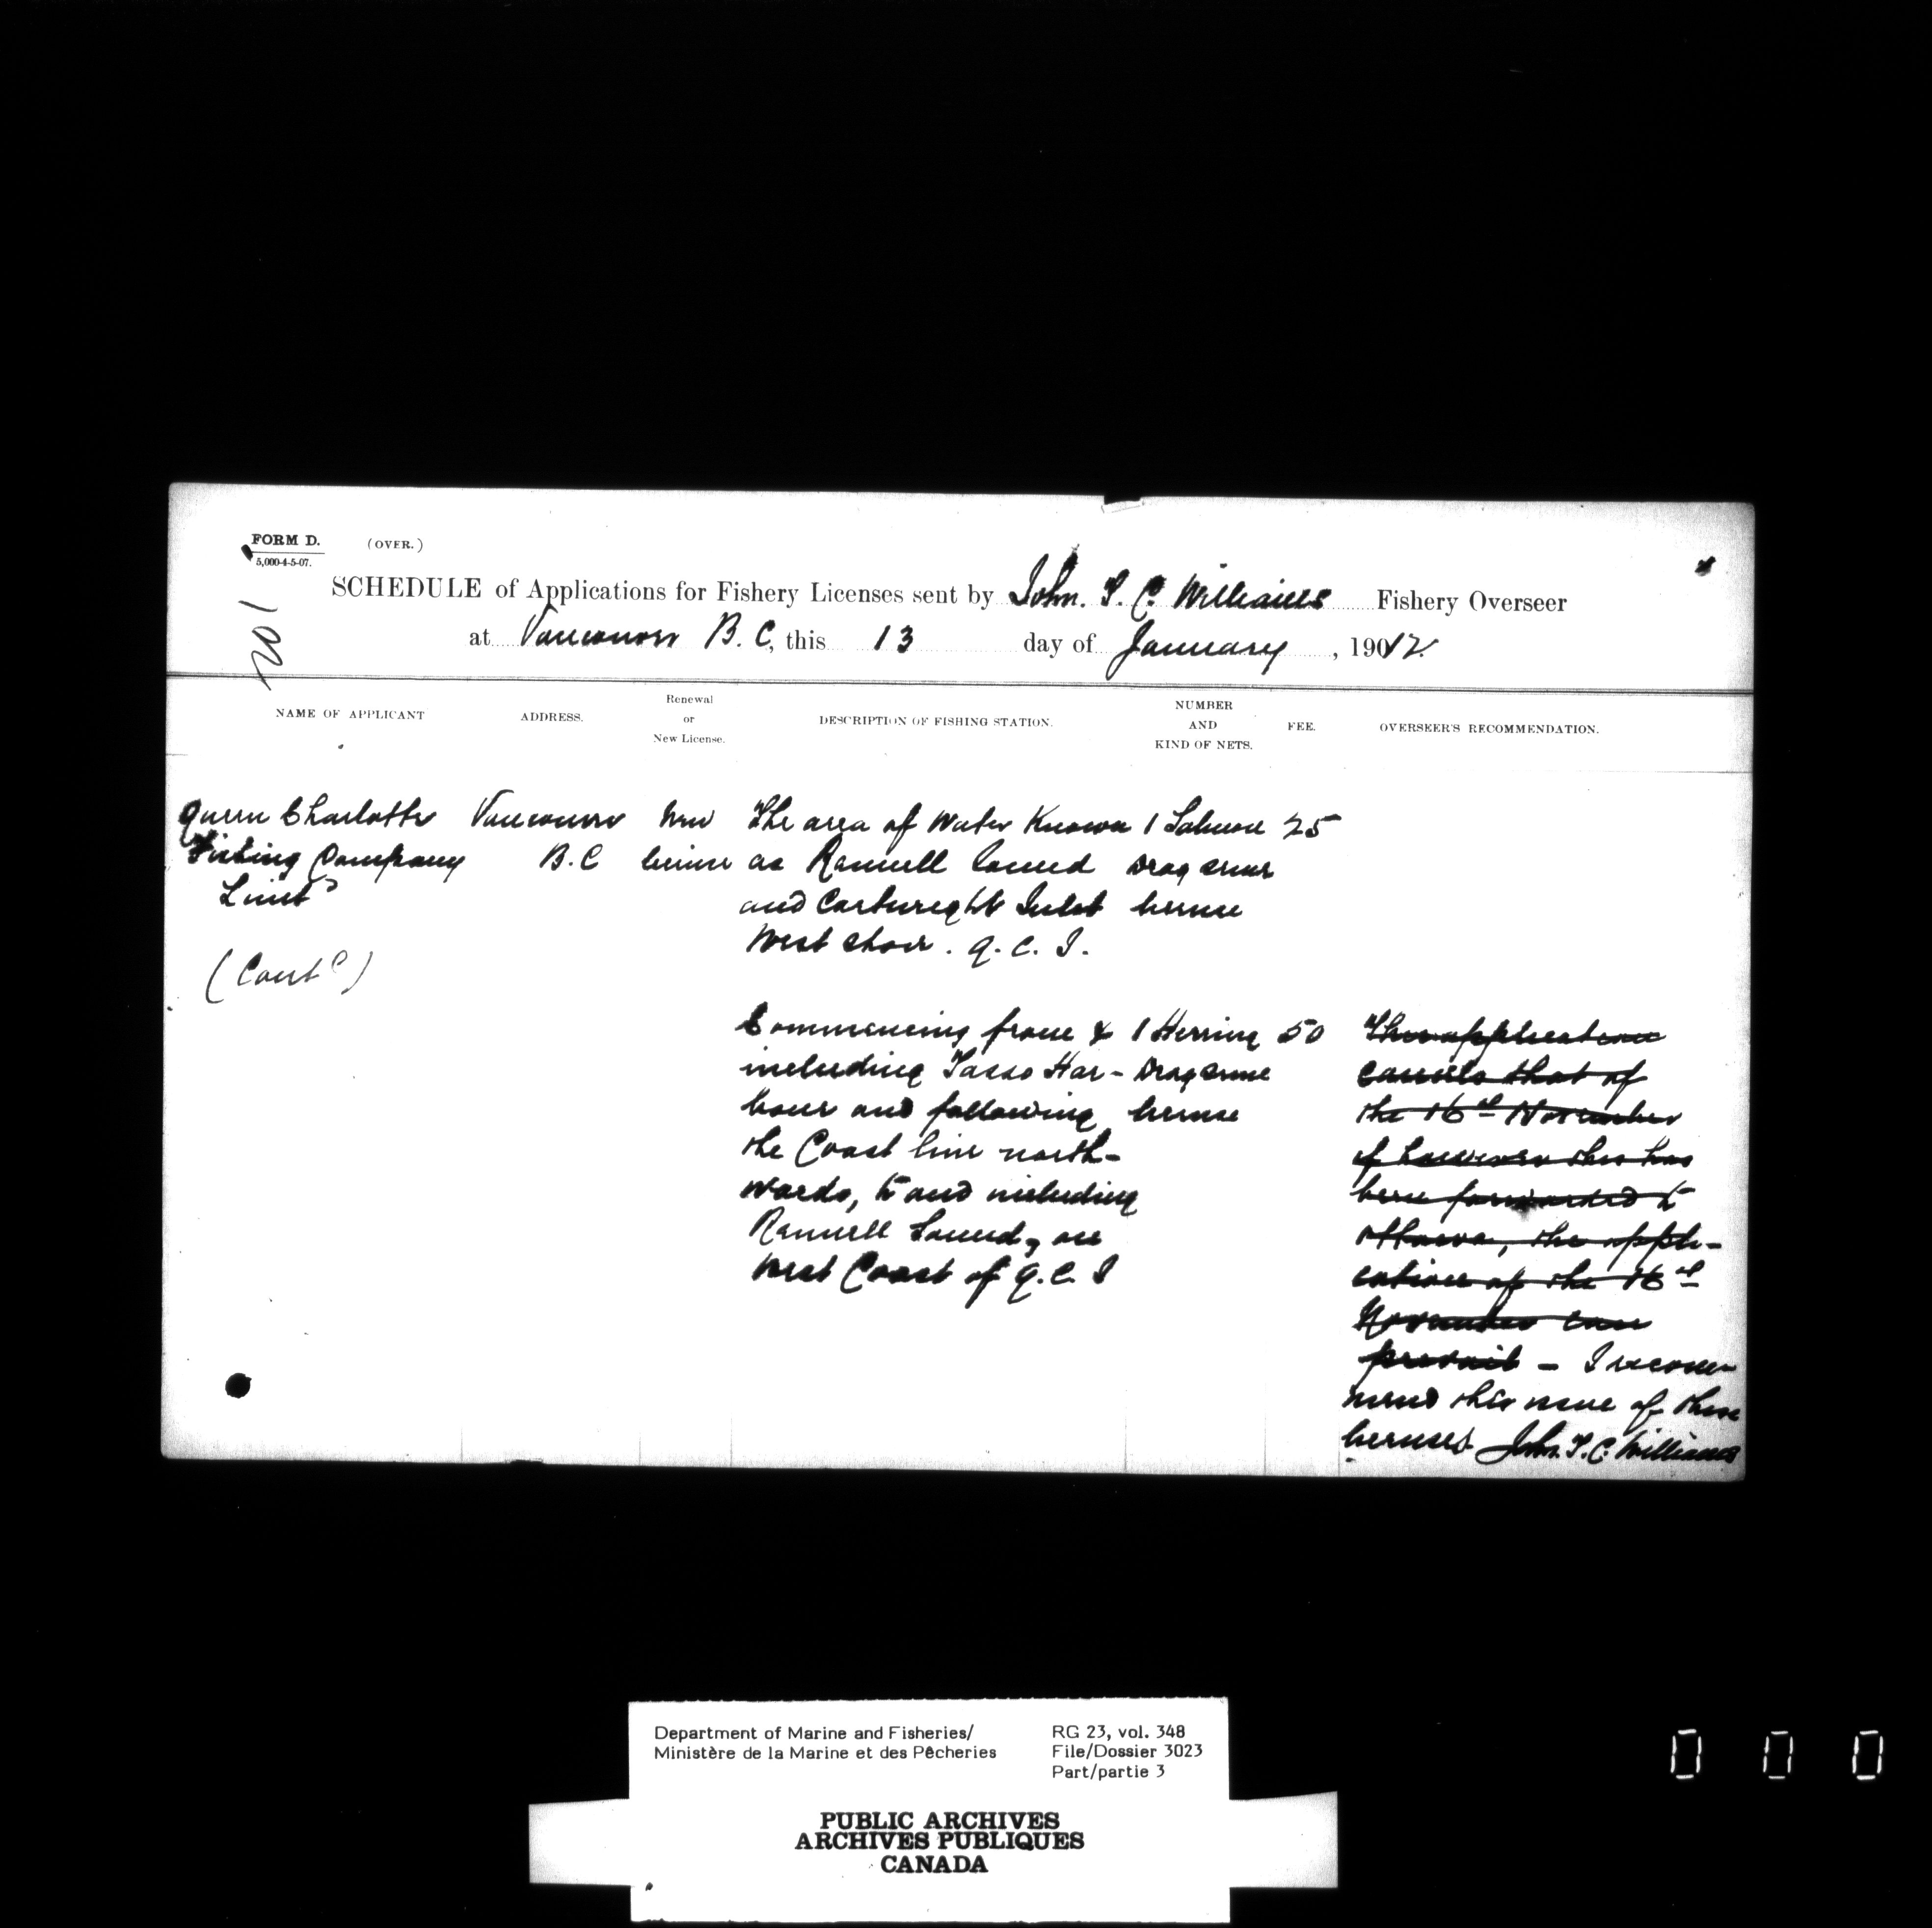 FORM D. (OVER.)
5,000-4-5-07.
201
SCHEDULE of Applications for Fishery Licenses sent by John. T. C. Williams Fishery Overseer
at Vancouver B.C, this 13 day of January, 19012.
NAME OF APPLICANT
ADDRESS.
Renewal
or
New License.
DESCRIPTION OF FISHING STATION.
NUMBER
AND
KIND OF NETS.
FEE.
OVERSEER'S RECOMMENDATION.
Queen Charlotte
Fishing Company
Limtd
(Contd)
Vancouver
B.C
New
license
The area of Water Known
as Rennell Sound
and Cartwright Inlet
West shore. Q. C. I.
1 Salmon
Drag seine
license
25
Commencing from &
including Tasso Har-
bour and following
the Coast line north-
wards, to and including
Rennell Sound, on
West Coast of Q. C. I
1 Herring
Drag seine
license
50
This application
cancels that of
the 16th November
if however this has
been forwarded to
Ottawa, the appli-
cation of the 16th
November can
prevail - I recom
mend the issue of these
licenses John. T. C. Williams
Department of Marine and Fisheries/
Ministère de la Marine et des Pêcheries
RG 23, vol. 348
File/Dossier 3023
Part/partie 3
PUBLIC ARCHIVES
ARCHIVES PUBLIQUES
CANADA
0 0 0